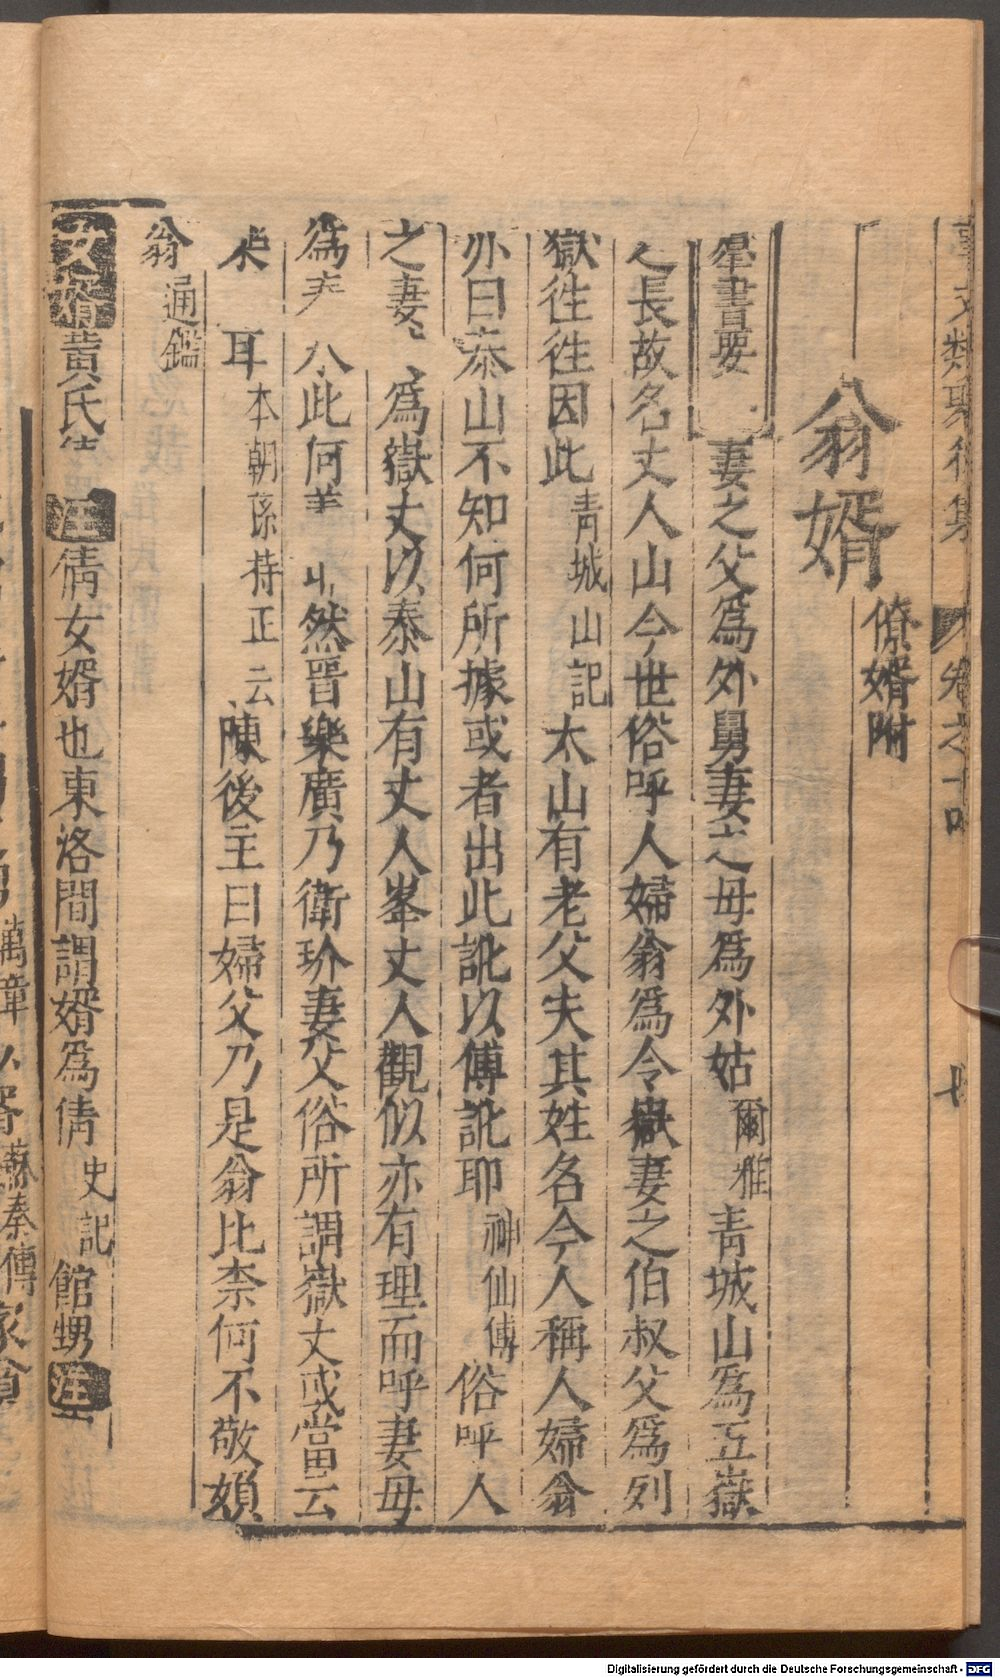 事文類聚後集 卷之十四
翁婿 僚婿附
羣書要 妻之父爲外舅妻之母爲外姑 爾雅 青城山爲五嶽
之長故名丈人山今世俗呼人婦翁爲令嶽妻之伯叔父爲列
嶽徃徃因此 青城山記 太山有老父夫其姓名今人稱人婦翁
亦曰泰山不知何所據或者出此訛以傳訛耶 神仙傳 俗呼人
之妻 爲嶽丈以泰山有丈人峯丈人觀似亦有理而呼妻母
爲 此何 然晉樂廣乃衛玠妻父俗所謂嶽丈或當云
耳 本朝孫持正云 陳後主曰婦父乃是翁比柰何不敬
翁 通鑑
女婿 黃氏 注 倩女婿也東洛間謂婿爲倩 史記 館甥 注
Digitalisierung gefördert durch die Deutsche Forschungsgemeinschaft - DFG